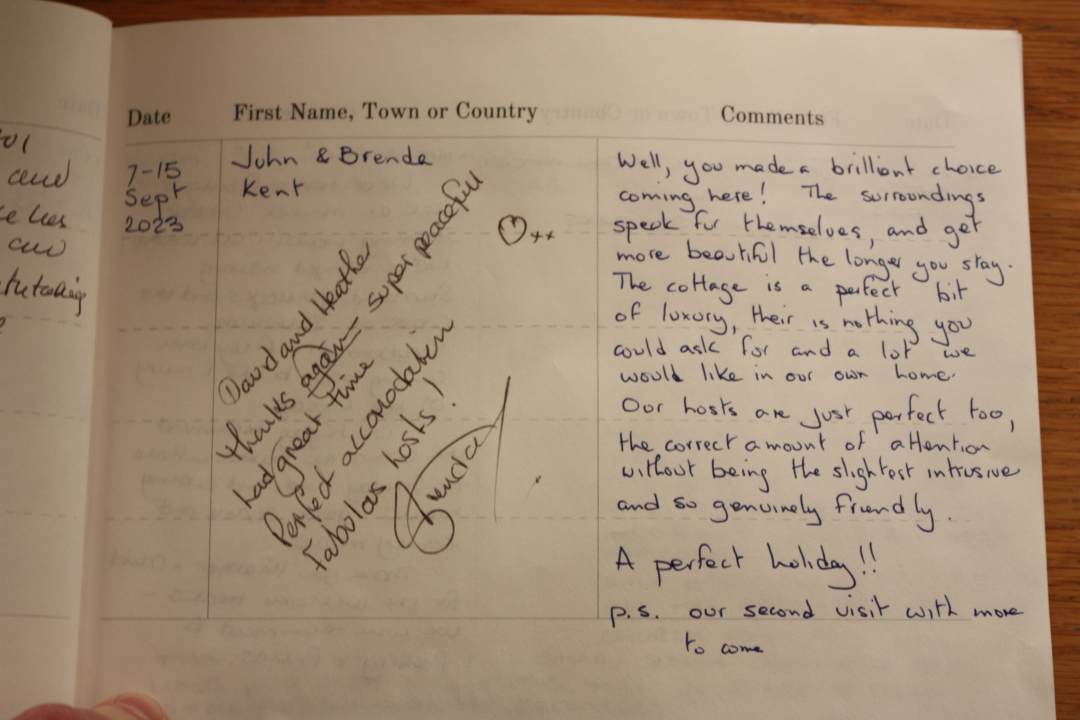 Date
First Name, Town or Country
Comments
and
and
7-15
Sept
2023
John & Brenda
Kent
David and Heather
thanks again super peacefull
had great time
Perfect accomodation
Fabulous hosts!
Brenda
xx
Well, you made a brilliant choice
coming here! The surroundings
speak for themselves, and get
more beautiful the longer you stay.
The cottage is a perfect bit
of luxury, their is nothing you
could ask for and a lot we
would like in our own home.
Our hosts are just perfect too,
the correct amount of attention
without being the slightest intrusive
and so genuinely friendly.
A perfect holiday!!
p.s. our second visit with more
to come